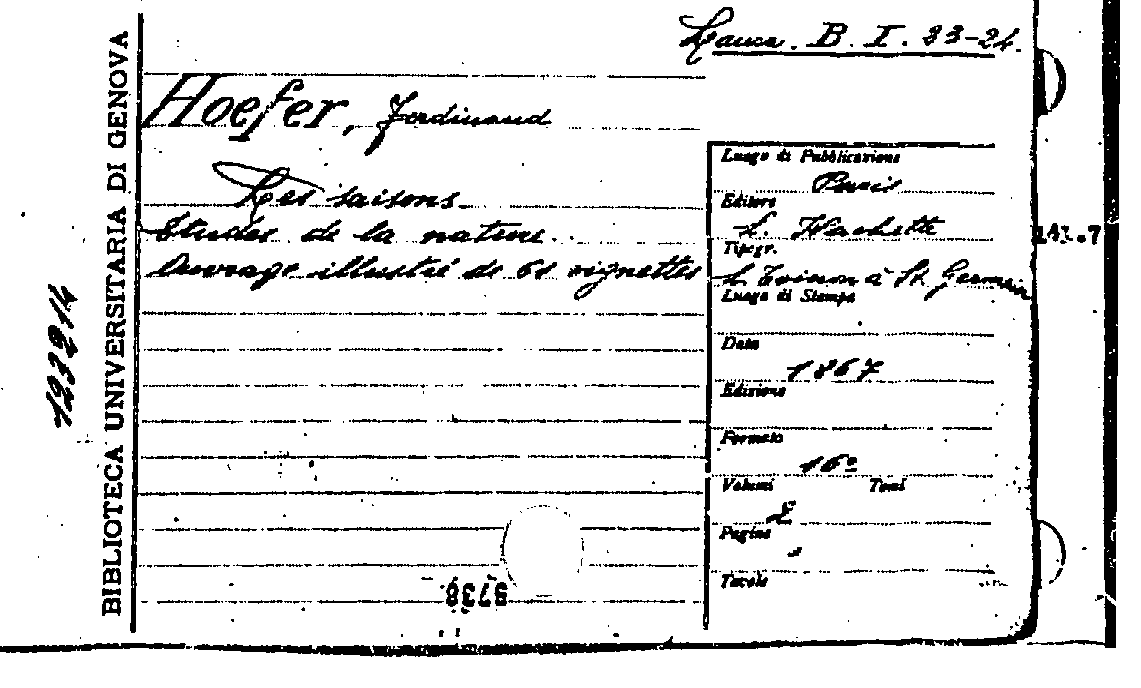 Lauca. B. I. 23-24.
Hoefer, Ferdinand
Les saisons.
Etudes de la nature..
Ouvrage illustré de 61 vignettes
Luogo di Pubblicazione
Paris
Editore
L. Hachette
Tipogr.
L Toinon à St Germain
Luogo di Stampa
Data
1867
Edizione
Formato
16°
Volumi Tomi
2
Pagine
Tavole
BIBLIOTECA UNIVERSITARIA DI GENOVA
123214
9738